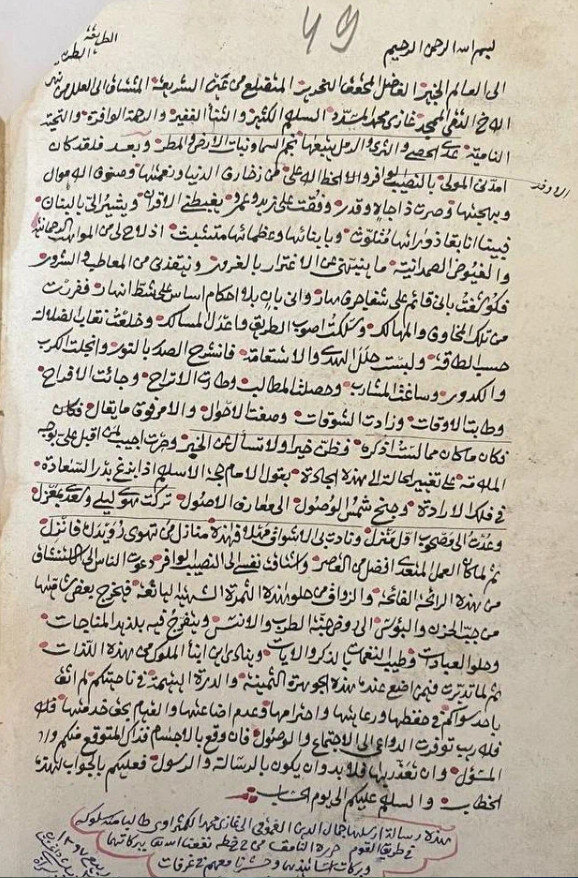 ٤٩
الطريقة
الطريقة
بسم الله الرحمن الرحيم
الى العالم الخبير الفاضل المحقق النحرير المتضلع من عين الشريعة المشتاق الى العلل من نهر
الاخ التقي الممجد غازي محمد المسدد السلام الكثير والثناء الغفير والرحمة الوافرة والتحية
النامية عدد الحصى والثرى والرمل يتبعها نجم السما ونبات الارض والمطر وبعد فلقد كان
امدني المولى بالنصيب الوافر والالحظ الاعلى من زخارف الدنيا ونعمتها وصنوف الاموال
وبهجتها وصرت ذا جاه وقدر وفقت على زيد وعمرو يغبطني الاقران ويشير الي بالبنان
فبينا انا بقاذوراتها متلوث وبابنائها وعظمائها متشبث اذ لاح لي من المواهب الرحمانية
والفيوض الصمدانية ما ينبهني عن الاغترار بالغرور وينقذني من المعاطب والشرور
فكوشفت باني قائم على شفا جرف هار واني بان بلا احكام اساس على شط انهار ففررت
من تلك المخاوف والمهالك وسلكت اصوب الطريق واعدل المسالك وخلعت نقاب الضلالة
حسب الطاقة ولبست حلل الهدى والاستقامة فانشرح الصدر بالنور وانجلت الكرب
والكدور وساغت المشارب وحصلنا المطالب وطارت الاتراح وجائت الافراح
وطابت الاوقات وزادت الشوقات وصفت الاحوال والامر فوق ما يقال فكان
فكان ما كان مما لست اذكره فظن خيرا ولا تسأل عن الخبر وصرت اجيب لمن اقبل علي بوجه
الملامة على تغيير الحالة الى هذه الجادة بقول الامام حجة الاسلام اذا بزغ بدر السعادة
في فلك الارادة وصح شمس الوصول الى معارف الاصول تركت هوى ليلى وسعدى بمعزل
وعدت الى مصحوب اول منزل ونادت بي الاشواق مهلا فهذه منازل من تهوى رويدك فانزل
ثم لما كان العمل المتعدي افضل من القاصر واشتاقت نفسي الى النصيب الوافر دعوت الناس الى الاستنشاق
من هذه الرائحة الفائحة والذواق من حلو هذه الثمرة الشهية اليانعة فيخرج بعض شاقيها
من جب الحزن والبؤس الى روض جنة الطرب والانس ويتفرج فيه بلذيذ المناجات
وحلو العبادات وطيب النغمات بالذكر والايات وينادى اين ابناء الملوك من هذه اللذات
ثم لما تدبرت فيمن اضع عنده هذه الجوهرة الثمينة والدرة اليتيمة في ناحيتكم لم اثق
باحد سواكم في حفظها ورعايتها واحترامها وعدم اضاعتها والقيام بحق خدمتها فلا
فلا ريب توفرت الدواعي الى الاجتماع والوصول فان وقع بالاجسام فذاك المتوقع منكم والمأمول
المسؤل وان تعذر بها فلا بد وان يكون بالرسالة والرسول فعليكم بالجواب لهذا
الخطاب والسلام عليكم الى يوم الحساب
هذه رسالة ارسلها جمال الدين الغموقي الى غازي محمد الكمراوي طالبا منه سلوكه
في طريق القوم حرره الناسخ من خطه نفعنا الله تعالى ببركاتها
وبركات اساتيذها وحشرنا معهم في غرفات